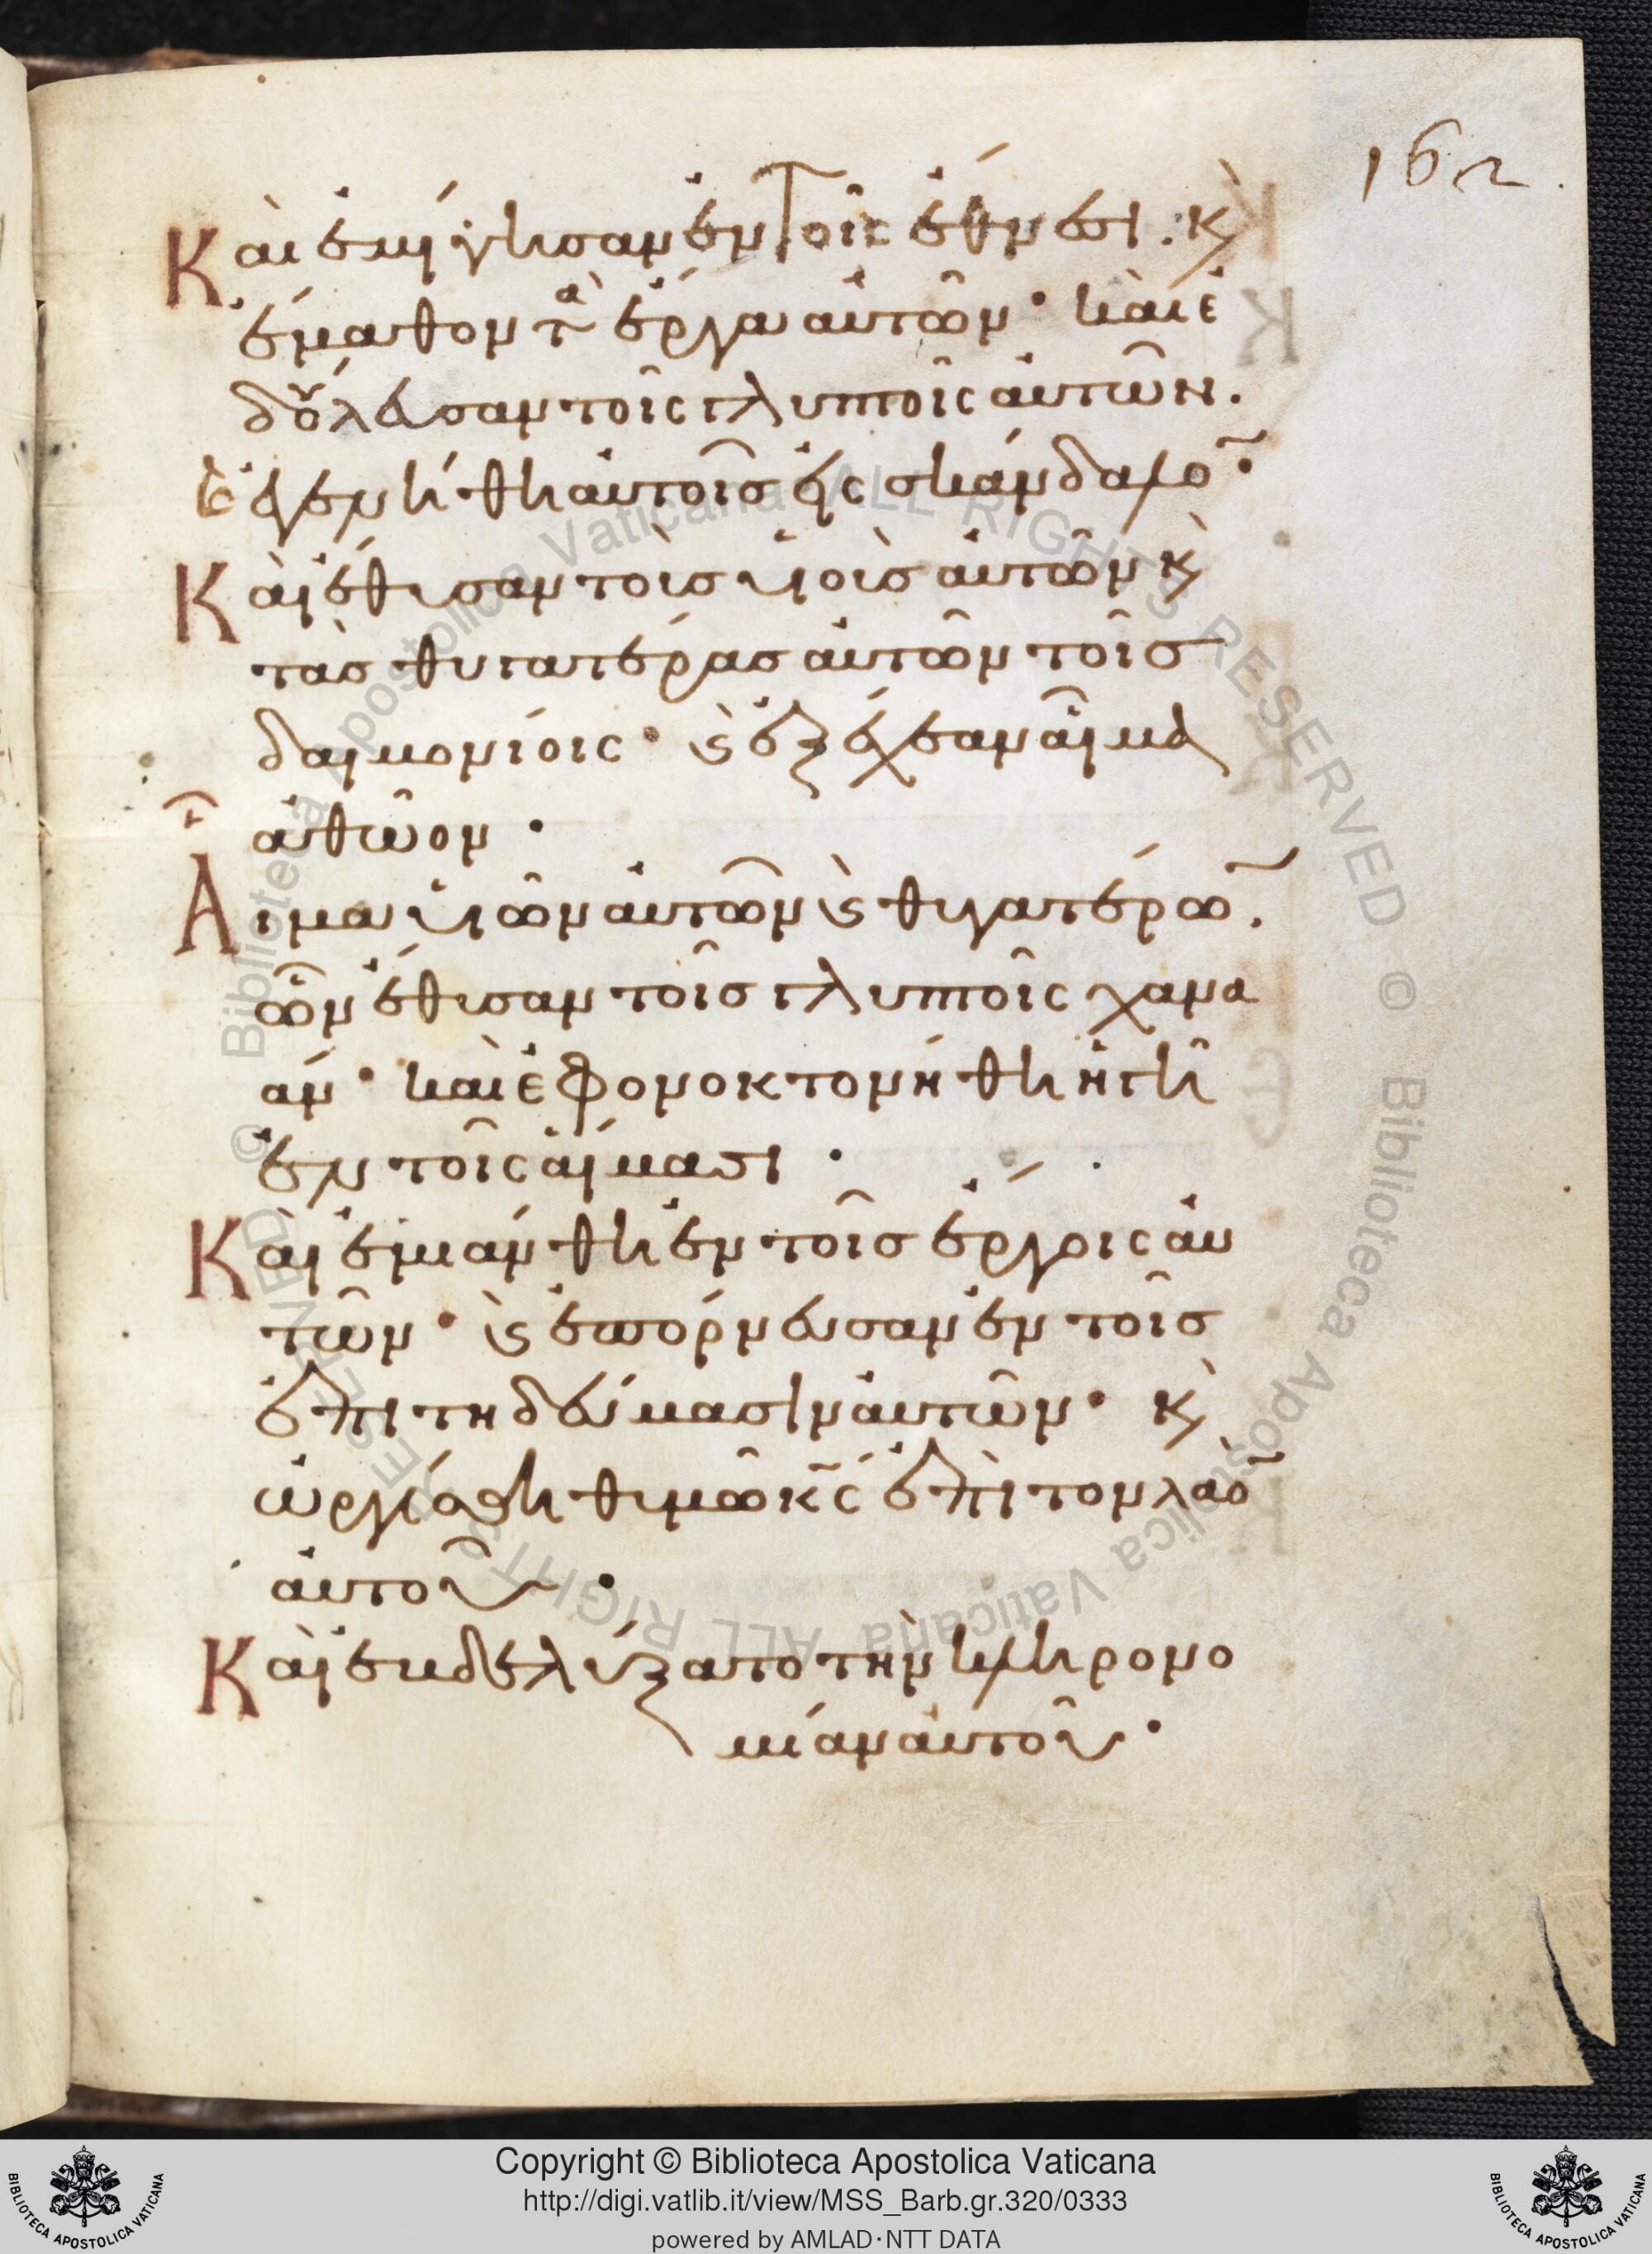 162.
Καὶ ἐμίγησαν ἐν τοῖς ἔθνεσι. κ̀
ἔμαθον τὰ ἔργα αὐτῶν· καὶ ἐ
δούλευσαν τοῖς γλυπτοῖς αὐτῶν.
Ἐγενήθη αὐτοῖς εἰς σκάνδαλο̅·
Καὶ ἔθυσαν τοὺς υἱοὺς αὐτῶν κ̀
τὰς θυγατέρας αὐτῶν τοῖς
δαιμονίοις· ϗ̀ ἐξέχεαν αἷμα
ἀθῶον·
Αἷμα υἱῶν αὐτῶν ϗ̀ θυγατέρω̅.
ὧν ἔθυσαν τοῖς γλυπτοῖς χανα
άν· καὶ ἐφονοκτονήθη ἡ γῆ
ἐν τοῖς αἵμασι·
Καὶ ἐμιάνθη ἐν τοῖς ἔργοις αὐ
τῶν· ϗ̀ ἐπόρνευσαν ἐν τοῖς
ἐπιτηδεύμασιν αὐτῶν· κ̀
ὠργίσθη θυμῶ κ̅ς̅ ἐπὶ τὸν λαὸ̅
αὐτοῦ·
Καὶ ἐβδελύξατο τὴν κληρονο
μίαν αὐτοῦ·
Copyright © Biblioteca Apostolica Vaticana
http://digi.vatlib.it/view/MSS_Barb.gr.320/0333
powered by AMLAD·NTT DATA
BIBLIOTECA APOSTOLICA VATICANA
BIBLIOTECA APOSTOLICA VATICANA